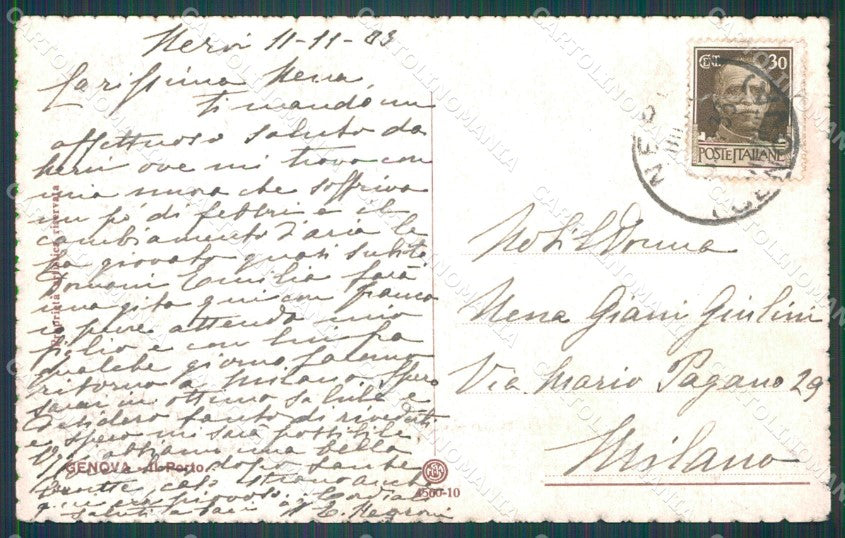 Nervi 11-11-33
Carissima Nena
Ti mando un
affettuoso saluto da
Nervi ove mi trovo con
una nuora che soffriva
un pò di febbri e il
cambiamento d'aria le
ha giovato quasi subito
Domani Emilia farà
una gita qui con Franco
io pure attendo mio
figlio e con lui fra
qualche giorno faremo
ritorno a Milano. Spero
sarai in ottima salute e
desidero tanto di rivederti
e spero mi sarà possibile.
Oggi abbiamo una bella
dopo tante
anche
piovoso. Cordiali
saluti a E. Negroni
Proprietà artistica riservata
GENOVA - Il Porto
4560-10
30
POSTE ITALIANE
NERVI
GENOVA
Nobil Donna
Nena Giani Giulini
Via Mario Pagano 29
Milano
CARTOLINOMANIA